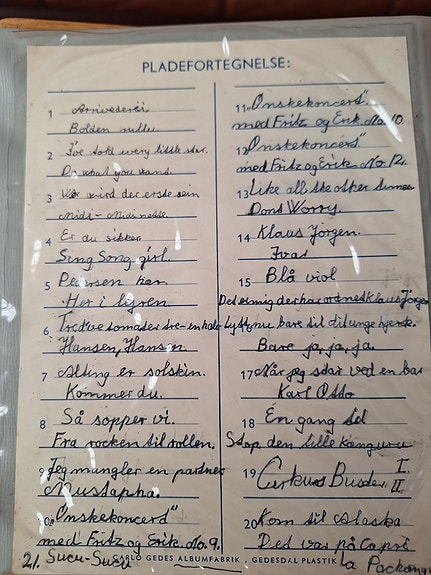 PLADEFORTEGNELSE:
1 Arrivederci
Bolden ruller.
2 I've told every little star.
Do what you
3 Wer wird der erste sein
Midi-Midinette.
4 Er du sikker
Sing Song girl.
5 Petersen har.
Her i lejren.
6 Tredve tomater tre-en halv
Hansen, Hansen.
7 Alting er solskin.
Kommer du.
8 Så sopper vi.
Fra rocken til rollen.
9 Jeg mangler en partner
Mustapha.
10 "Ønskekoncert"
med Fritz og Erik. No. 9.
21. Sucu-Sucu
11 "Ønskekoncert"
med Fritz og Erik. No. 10.
12 "Ønskekoncert"
med Fritz og Erik. No. 12.
13 Like all the other times
Dont Worry.
14 Klaus Jørgen.
15 Blå viol
Det er mig der har ordnet Klaus Jørgen
Lyt nu bare til dit unge hjerte.
Bare ja, ja, ja.
17 Når jeg står ved en bar
Karl Otto
18 En gang til
Stop den lille kænguru
19 Cirkus Buster I.
II.
20 Kom til Alaska
Det var på Capri
CARLO GEDES ALBUMFABRIK . GEDESDAL PLASTIK
la Pachanga